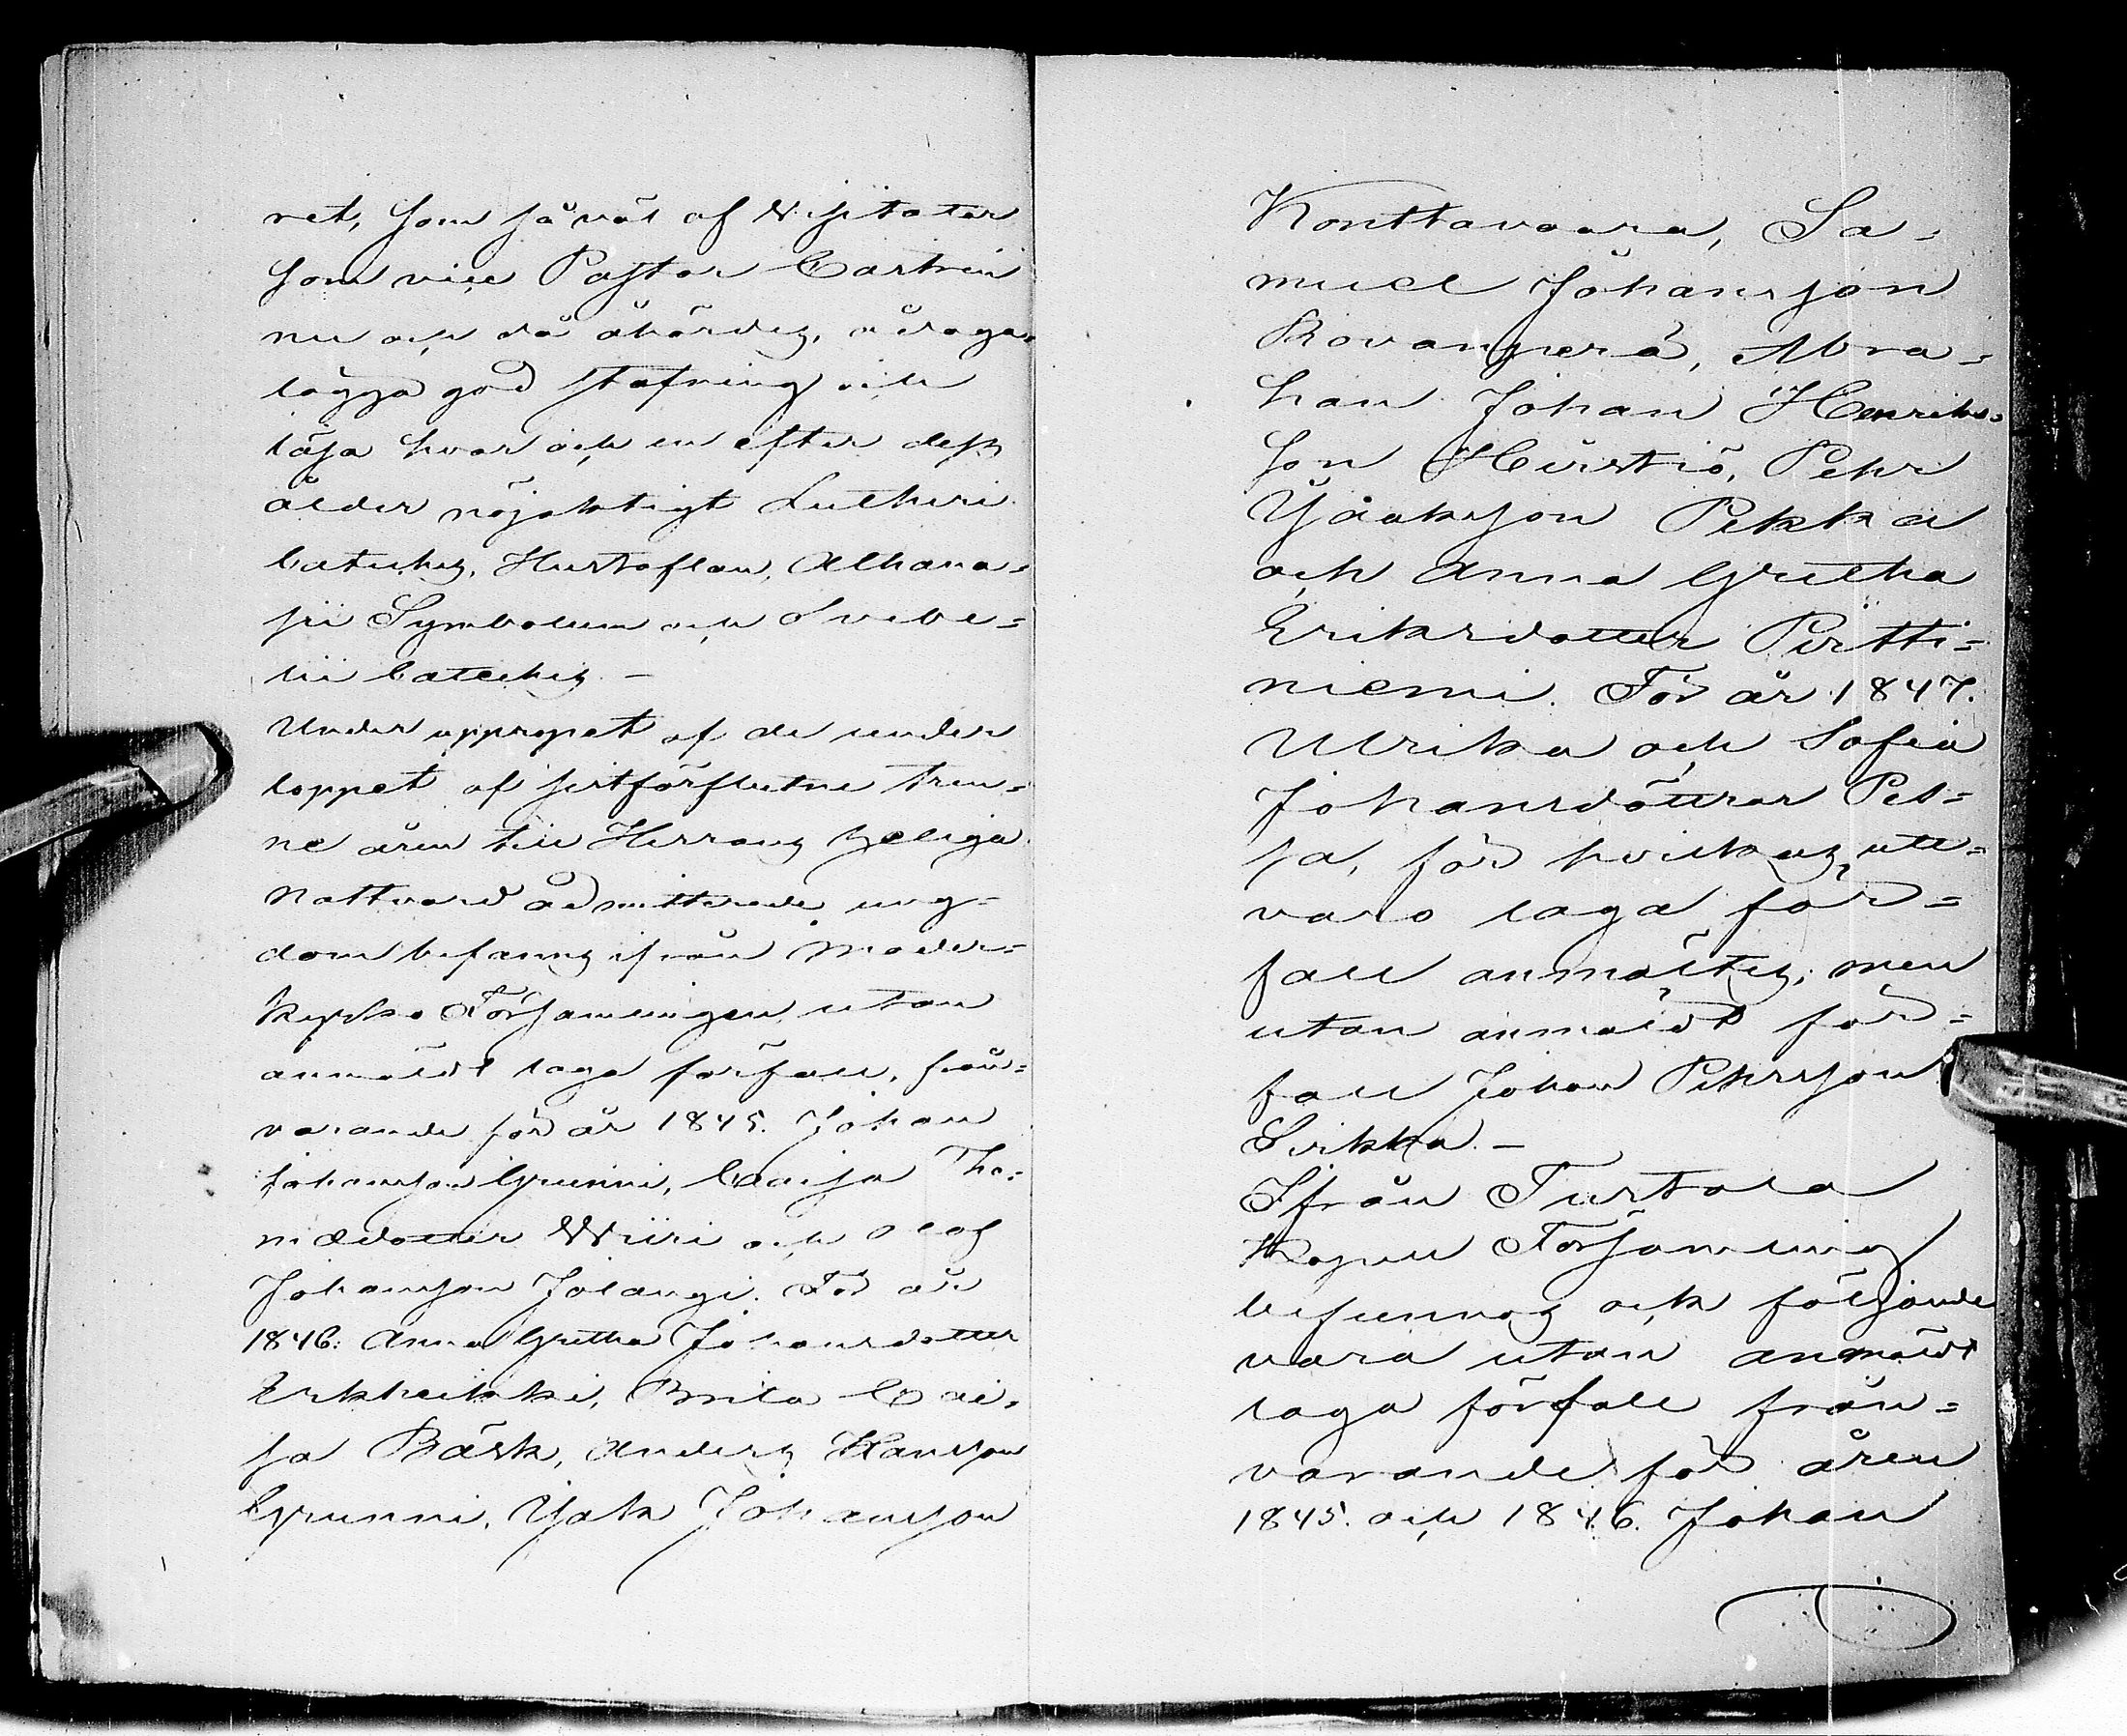 ret, som så väl af Visitator
som vice Pastor Castrén
nu och då åhördes, ådaga-
lägga god stafning och
läsa hvar och en efter dess
ålder nöjaktigt Lutheri
Cateches, Hustaflan, Athana-
sii Symbolum och Svebe-
lii Cateches. –
Under uppropet af de under
loppet af sistförflutne tren-
ne åren till Herrans heliga
nattvard admitterade ung-
dom befanns ifrån Moder-
kyrko Församlingen utan
anmäldt laga förfall, från-
varande för år 1845. Johan
Johansson Grunni, Caisa Tho-
mædotter Wiiri och Olof
Johansson Jolangi. För år
1846: Anna Gretha Johansdotter
Erkheikki, Brita Cai-
sa Bäck, Anders Hansson
Grunni, Isak Johansson
Konttavaara, Sa-
muel Johansson
Rovanperä, Abra-
ham Johan Henriks-
son Hirstiö, Pehr
Isaksson Pekka
och Anna Gretha
Eriksdotter Pirtti-
niemi. För år 1847.
Ulrika och Sofia
Johansdöttrar Pel-
sa, för hvilkas ute-
varo laga för-
fall anmältes; men
utan anmäldt för-
fall Johan Pehrsson
Sirkka. –
Ifrån Turtola
Kapell Församling
befunnos och följande
vara utan anmäldt
laga förfall från-
varande för åren
1845. och 1846. Johan